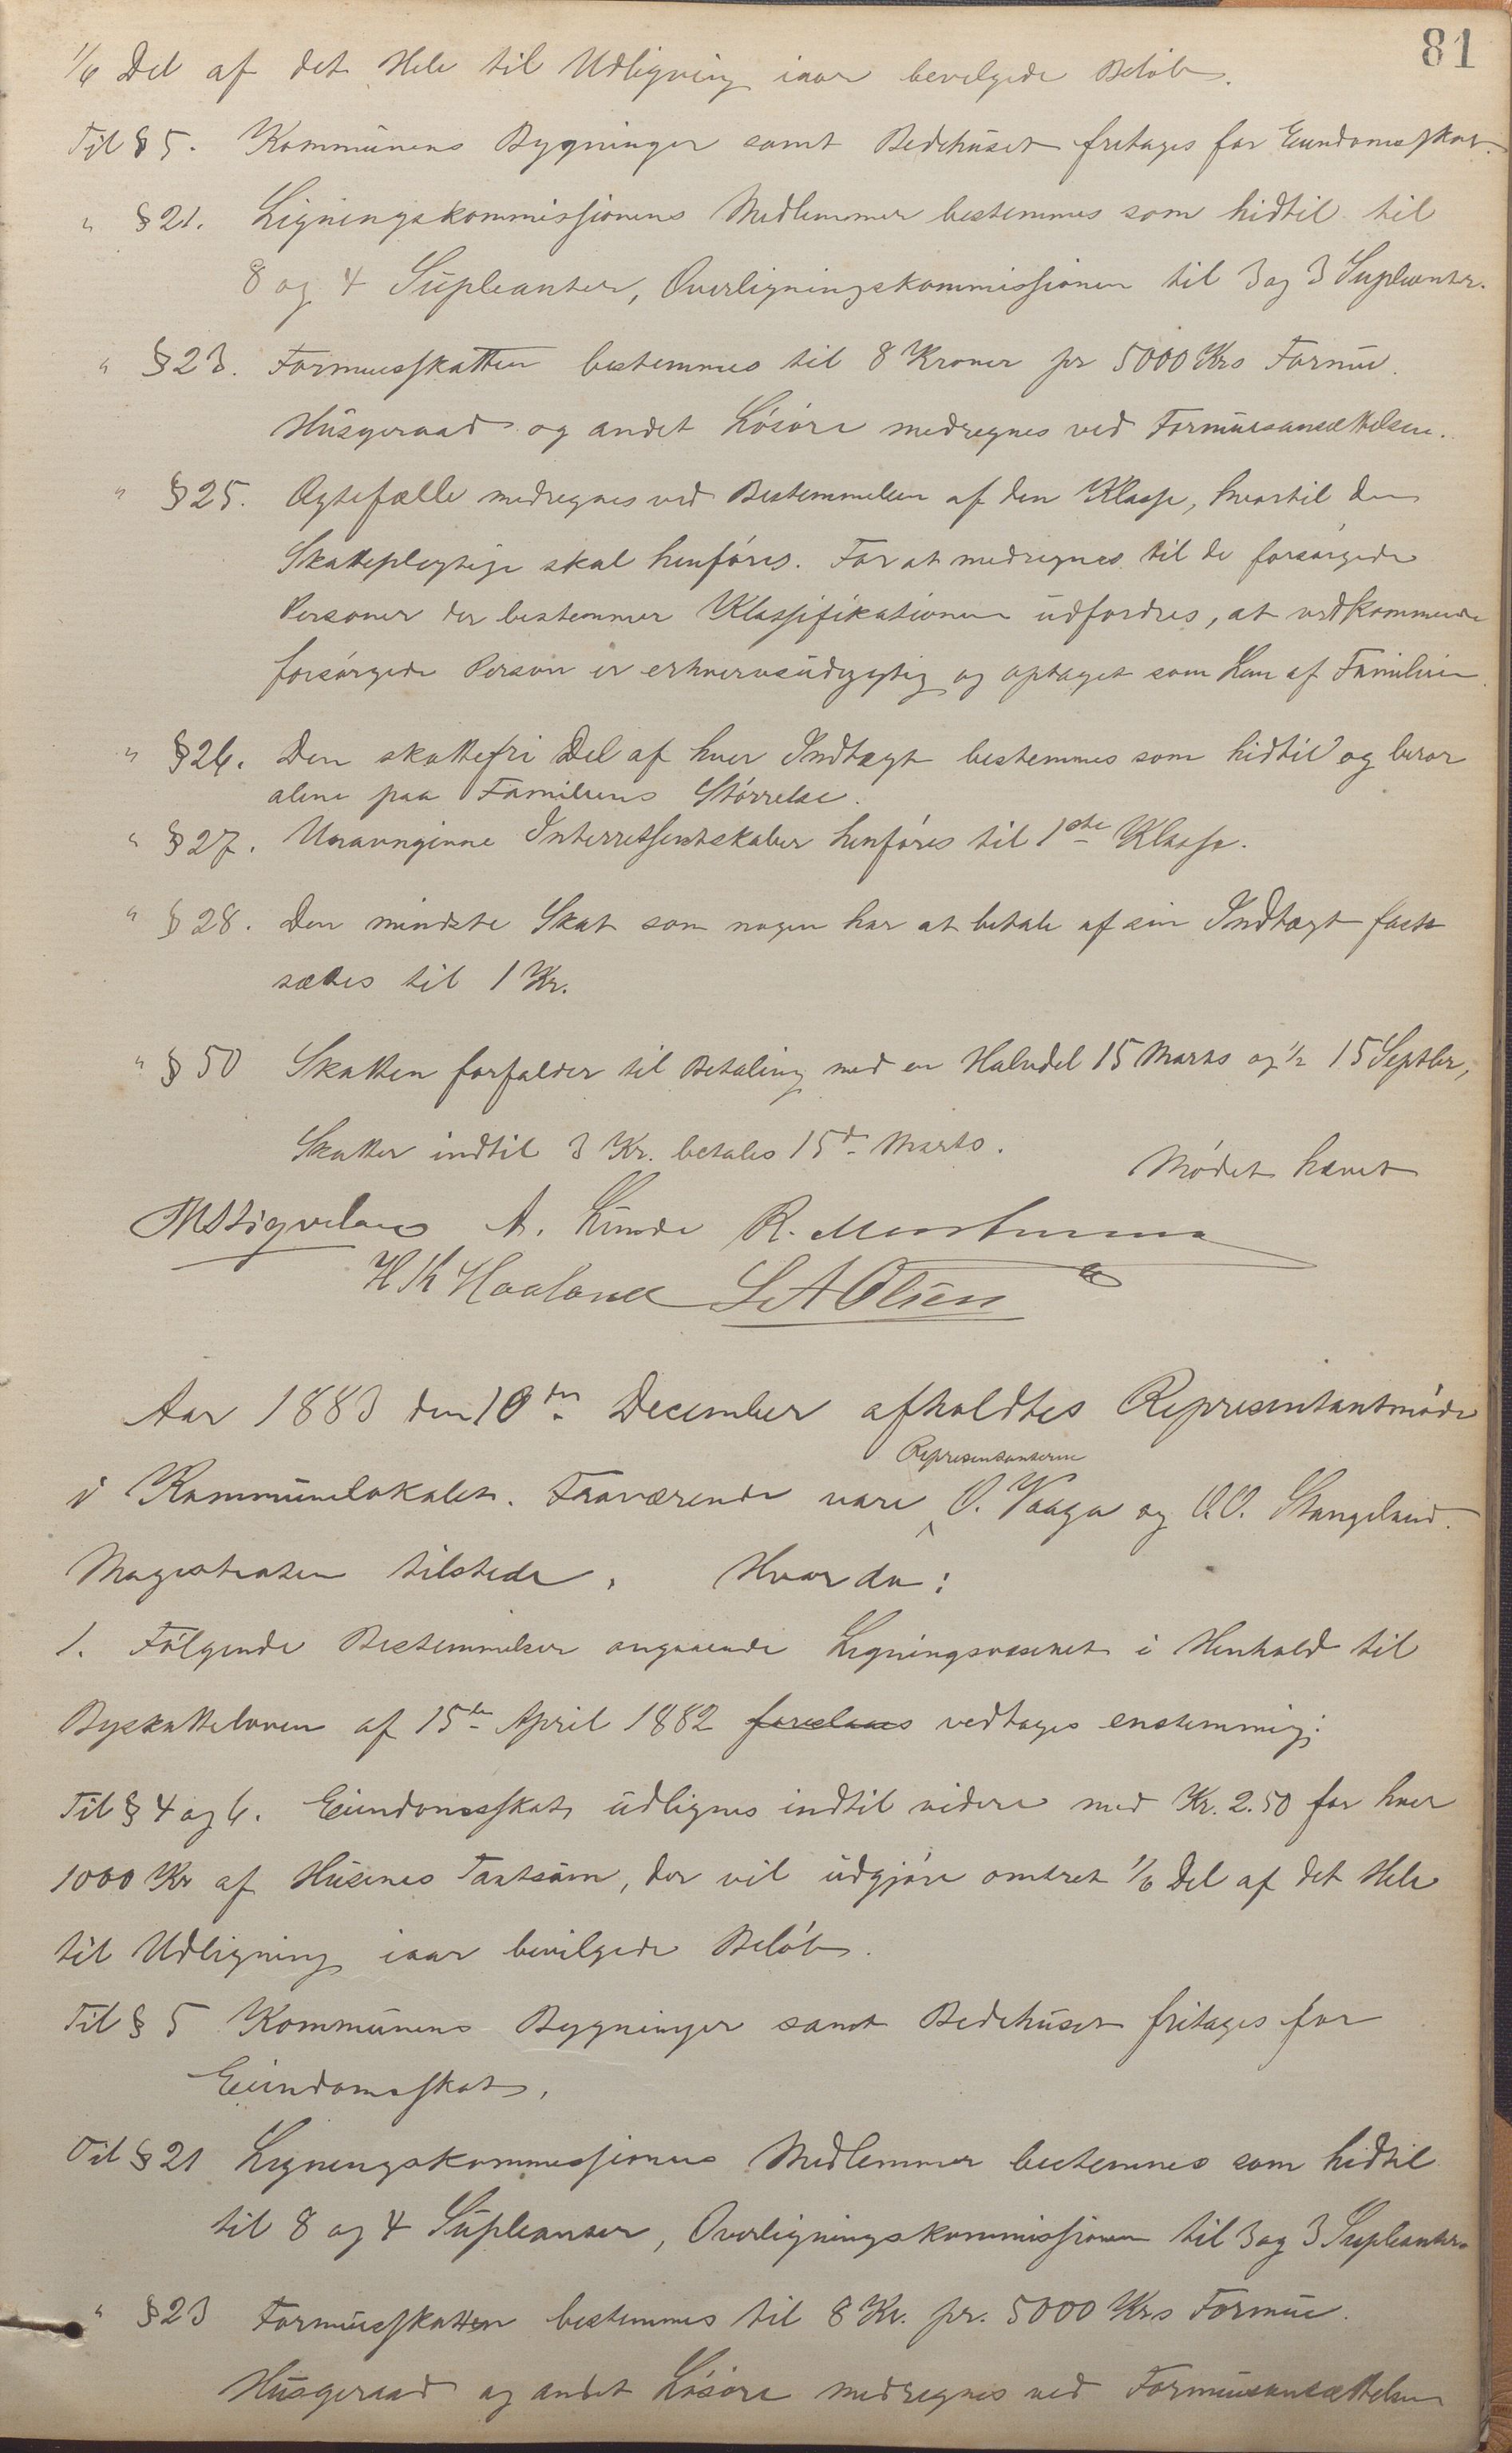 81
1/6 Del af det Hele til Udligning iaar bevilgede Beløb.
Til § 5. Kommunens Bygninger samt Bedehuset fritages for Eiendomsskat.
" § 21. Ligningskommissionens Medlemmer bestemmes som hidtil til
8 og 4 Supleanter, Overligningskommissionen til 3 og 3 Supleanter.
" § 23. Formuesskatten bestemmes til 8 Kroner pr 5000 Krs Formue.
Husgeraad og andet Løsøre medregnes ved Formuesansættelsen.
" § 25. Ægtefælle medregnes ved Bestemmelsen af den Klasse, hvortil den
Skattepligtige skal henføres. For at medregnes til de forsørgede
Personer der bestemmer Klassifikationen udfordres, at vedkommende
forsørgede Person er erhvervsudygtig og optaget som Lem af Familien.
" § 26. Den skattefri Del af hver Indtægt bestemmes som hidtil og beror
alene paa Familiens Størrelse.
" § 27. Unavngivne Interretsentskaber henføres til 1ste Klasse.
" § 28. Den mindste Skat som nogen har at betale af sin Indtægt fast
sættes til 1 Kr.
" § 50 Skatten forfalder til Betaling med en Halvdel 15 Marts og 1/2 15 Septbr,
Skatter indtil 3 Kr. betales 15de Marts.
Mødet hævet
A. Lunde R.
H Th Haaland L A Olsen
Aar 1883 den 10de December afholdtes Representantmøde
Representanterne
i Kommunelokalet. Fraværende vare O. Vaaga og O.O. Stangeland.
Magistraten tilstede. Hvorda:
1. Følgende Bestemmelser angaaende Ligningsvæsenet i Henhold til
Byskatteloven af 15de April 1882 foreslaaes vedtages enstemmig:
Til § 4 og 6. Eiendomsskat udlignes indtil videre med Kr. 2.50 for hver
1000 Kr af Husenes Taxtsum, der vil udgjøre omtret 1/6 Del af det Hele
til Udligning iaar bevilgede Beløb.
Til § 5 Kommunens Bygninger samt Bedehuset fritages for
Eiendomsskat.
Til § 21 Ligningskommissionens Medlemmer bestemmes som hidtil
til 8 og 4 Supleanter, Overligningskommissionen til 3 og 3 Supleanter.
" § 23 Formuesskatten bestemmes til 8 Kr. pr. 5000 Krs Formue.
Husgeraad og andet Løsøre medregnes ved Formuesansættelsen